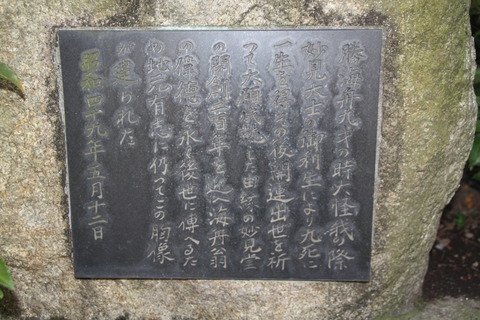 勝海舟九才の時大怪我の際
妙見大士の御利生により九死に
一生を得その後開運出世を祈
って大願成就した由緒の妙見堂
の開創二百年を迎へ海舟翁
の偉徳を永く後世に傳へるた
め妙見有志に仍ってこの胸像
が造られた
昭和四十九年五月十二日